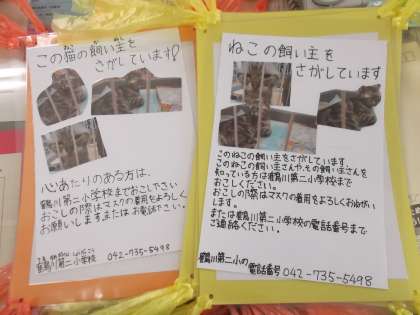 この猫の飼い主を
さがしています!
心あたりのある方は、
鶴川第二小学校までお起こし下さい
おこしの際はマスクの着用をよろしく
お願いします。またはお電話下さい。
鶴川第二小学校 042-735-5498
ねこの飼い主を
さがしています
このねこの飼い主をさがしています。
このねこの飼い主さんや、その飼い主さんを
知っている方は鶴川第二小学校まで
おこしください。
おこしの際はマスクの着用をよろしくお願いし
ます。
または鶴川第二小学校の電話番号まで
ご連絡ください。
鶴川第二小の
電話番号 042-735-5498